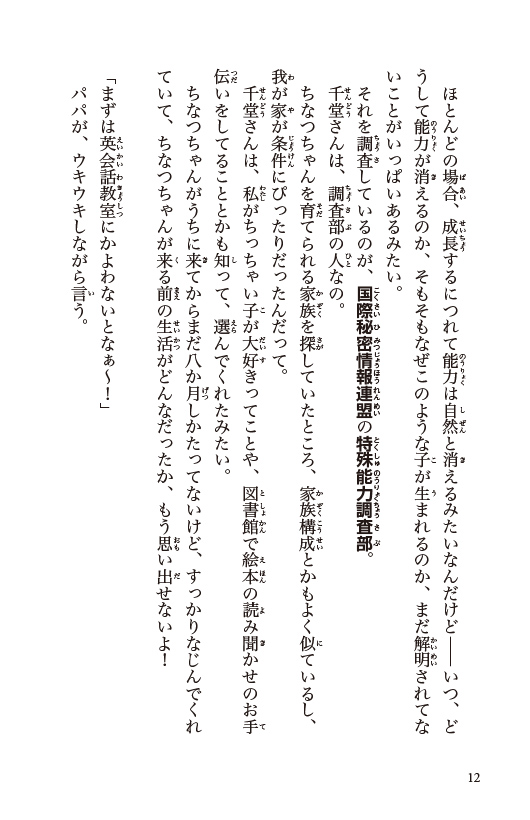 ほとんどの場合、成長するにつれて能力は自然と消えるみたいなんだけど――いつ、ど
うして能力が消えるのか、そもそもなぜこのような子が生まれるのか、まだ解明されてな
いことがいっぱいあるみたい。
それを調査しているのが、国際秘密情報連盟の特殊能力調査部。
千堂さんは、調査部の人なの。
ちなつちゃんを育てられる家族を探していたところ、家族構成とかもよく似ているし、
我が家が条件にぴったりだったんだって。
千堂さんは、私がちっちゃい子が大好きってことや、図書館で絵本の読み聞かせのお手
伝いをしてることとかも知って、選んでくれたみたい。
ちなつちゃんがうちに来てからまだ八か月しかたってないけど、すっかりなじんでくれ
ていて、ちなつちゃんが来る前の生活がどんなだったか、もう思い出せないよ！
「まずは英会話教室にかよわないとなぁ～！」
パパが、ウキウキしながら言う。
12